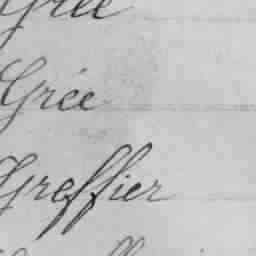 Grée
Grée
Greffier